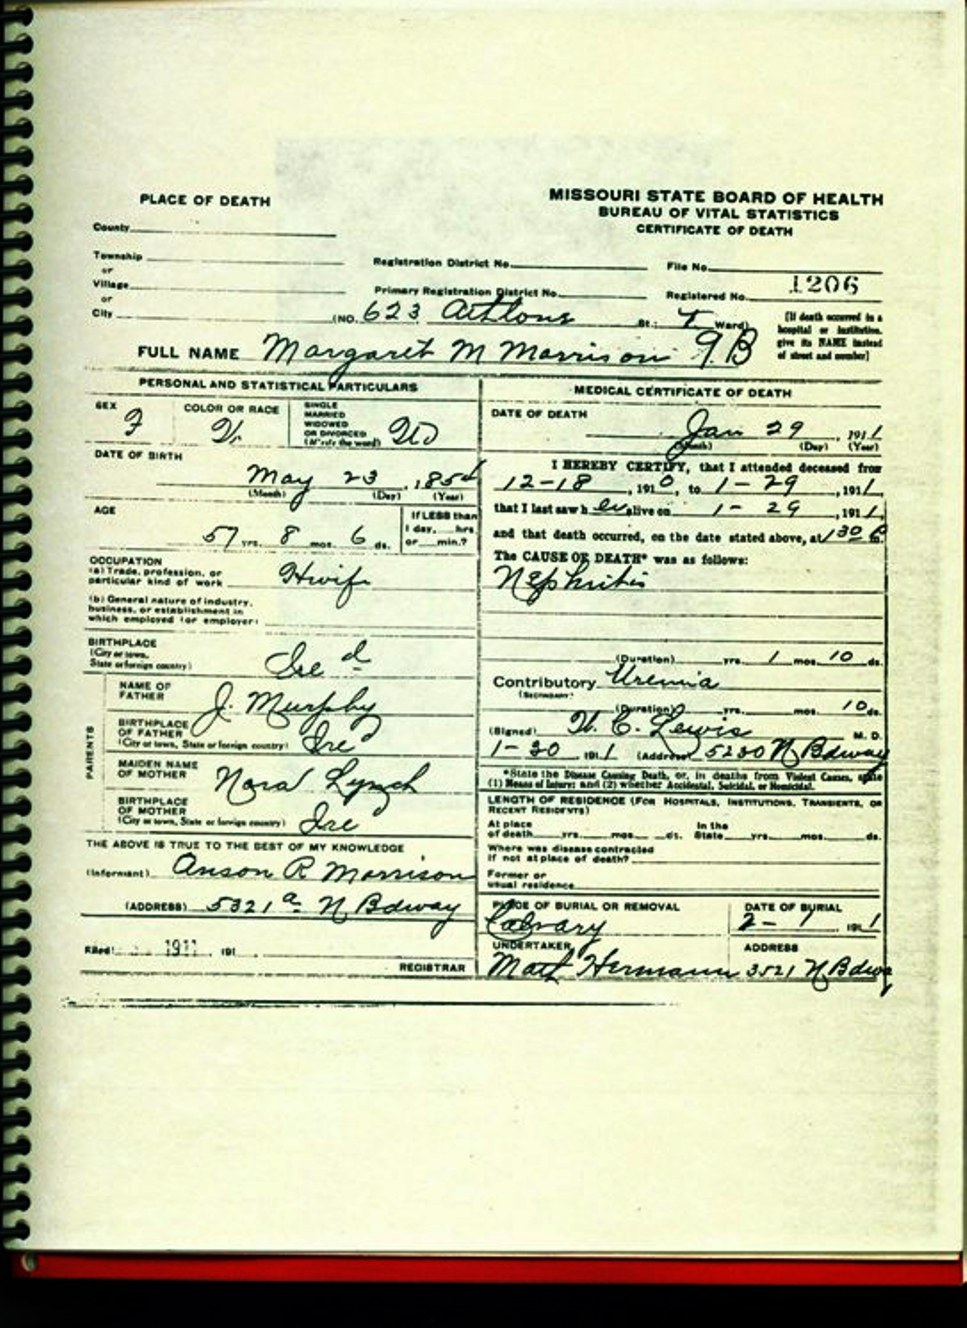 PLACE OF DEATH
MISSOURI STATE BOARD OF HEALTH
BUREAU OF VITAL STATISTICS
CERTIFICATE OF DEATH
County
Township
or
Village
or
City
Registration District No.
File No.
Primary Registration District No.
Registered No. 1206
(NO. 623 St.; Ward)
[If death occurred in a hospital or institution, give its NAME instead of street and number]
FULL NAME Margaret M Morrison
PERSONAL AND STATISTICAL PARTICULARS
SEX F
COLOR OR RACE W
SINGLE
MARRIED
WIDOWED
OR DIVORCED
(Write the word) Wid
DATE OF BIRTH
May 23, 185
(Month) (Day) (Year)
AGE
57 yrs. 8 mos. 6 ds.
If LESS than
1 day, hrs.
or min.?
OCCUPATION
(a) Trade, profession, or
particular kind of work Hwife
(b) General nature of industry,
business, or establishment in
which employed (or employer)
BIRTHPLACE
(City or town,
State or foreign country) Ire d
PARENTS
NAME OF
FATHER J. Murphy
BIRTHPLACE
OF FATHER
(City or town, State or foreign country) Ire
MAIDEN NAME
OF MOTHER Nora Lynch
BIRTHPLACE
OF MOTHER
(City or town, State or foreign country) Ire
THE ABOVE IS TRUE TO THE BEST OF MY KNOWLEDGE
(Informant) Anson R Morrison
(ADDRESS) 5321 a N Bdway
Filed 1911, 191
REGISTRAR
MEDICAL CERTIFICATE OF DEATH
DATE OF DEATH
Jan 29 1911
(Month) (Day) (Year)
I HEREBY CERTIFY, that I attended deceased from
12-18, 1910, to 1-29, 1911,
that I last saw h er alive on 1-29, 1911,
and that death occurred, on the date stated above, at 130 m.
The CAUSE OF DEATH* was as follows:
Nephritis
(Duration) yrs. 1 mos. 10 ds.
Contributory Uremia
(SECONDARY)
(Duration) yrs. mos. 10 ds.
(Signed) H. C. Lewis M. D.
1-30 1911 (Address) 5230 N Bdway
*State the Disease Causing Death, or, in deaths from Violent Causes, state
(1) Means of Injury; and (2) whether Accidental, Suicidal, or Homicidal.
LENGTH OF RESIDENCE (FOR HOSPITALS, INSTITUTIONS, TRANSIENTS, OR
RECENT RESIDENTS)
At place
of death yrs. mos. ds.
In the
State yrs. mos. ds.
Where was disease contracted
if not at place of death?
Former or
usual residence
PLACE OF BURIAL OR REMOVAL
Calvary
DATE OF BURIAL
2-1 1911
UNDERTAKER
Math Hermann
ADDRESS
3521 N Bdwa